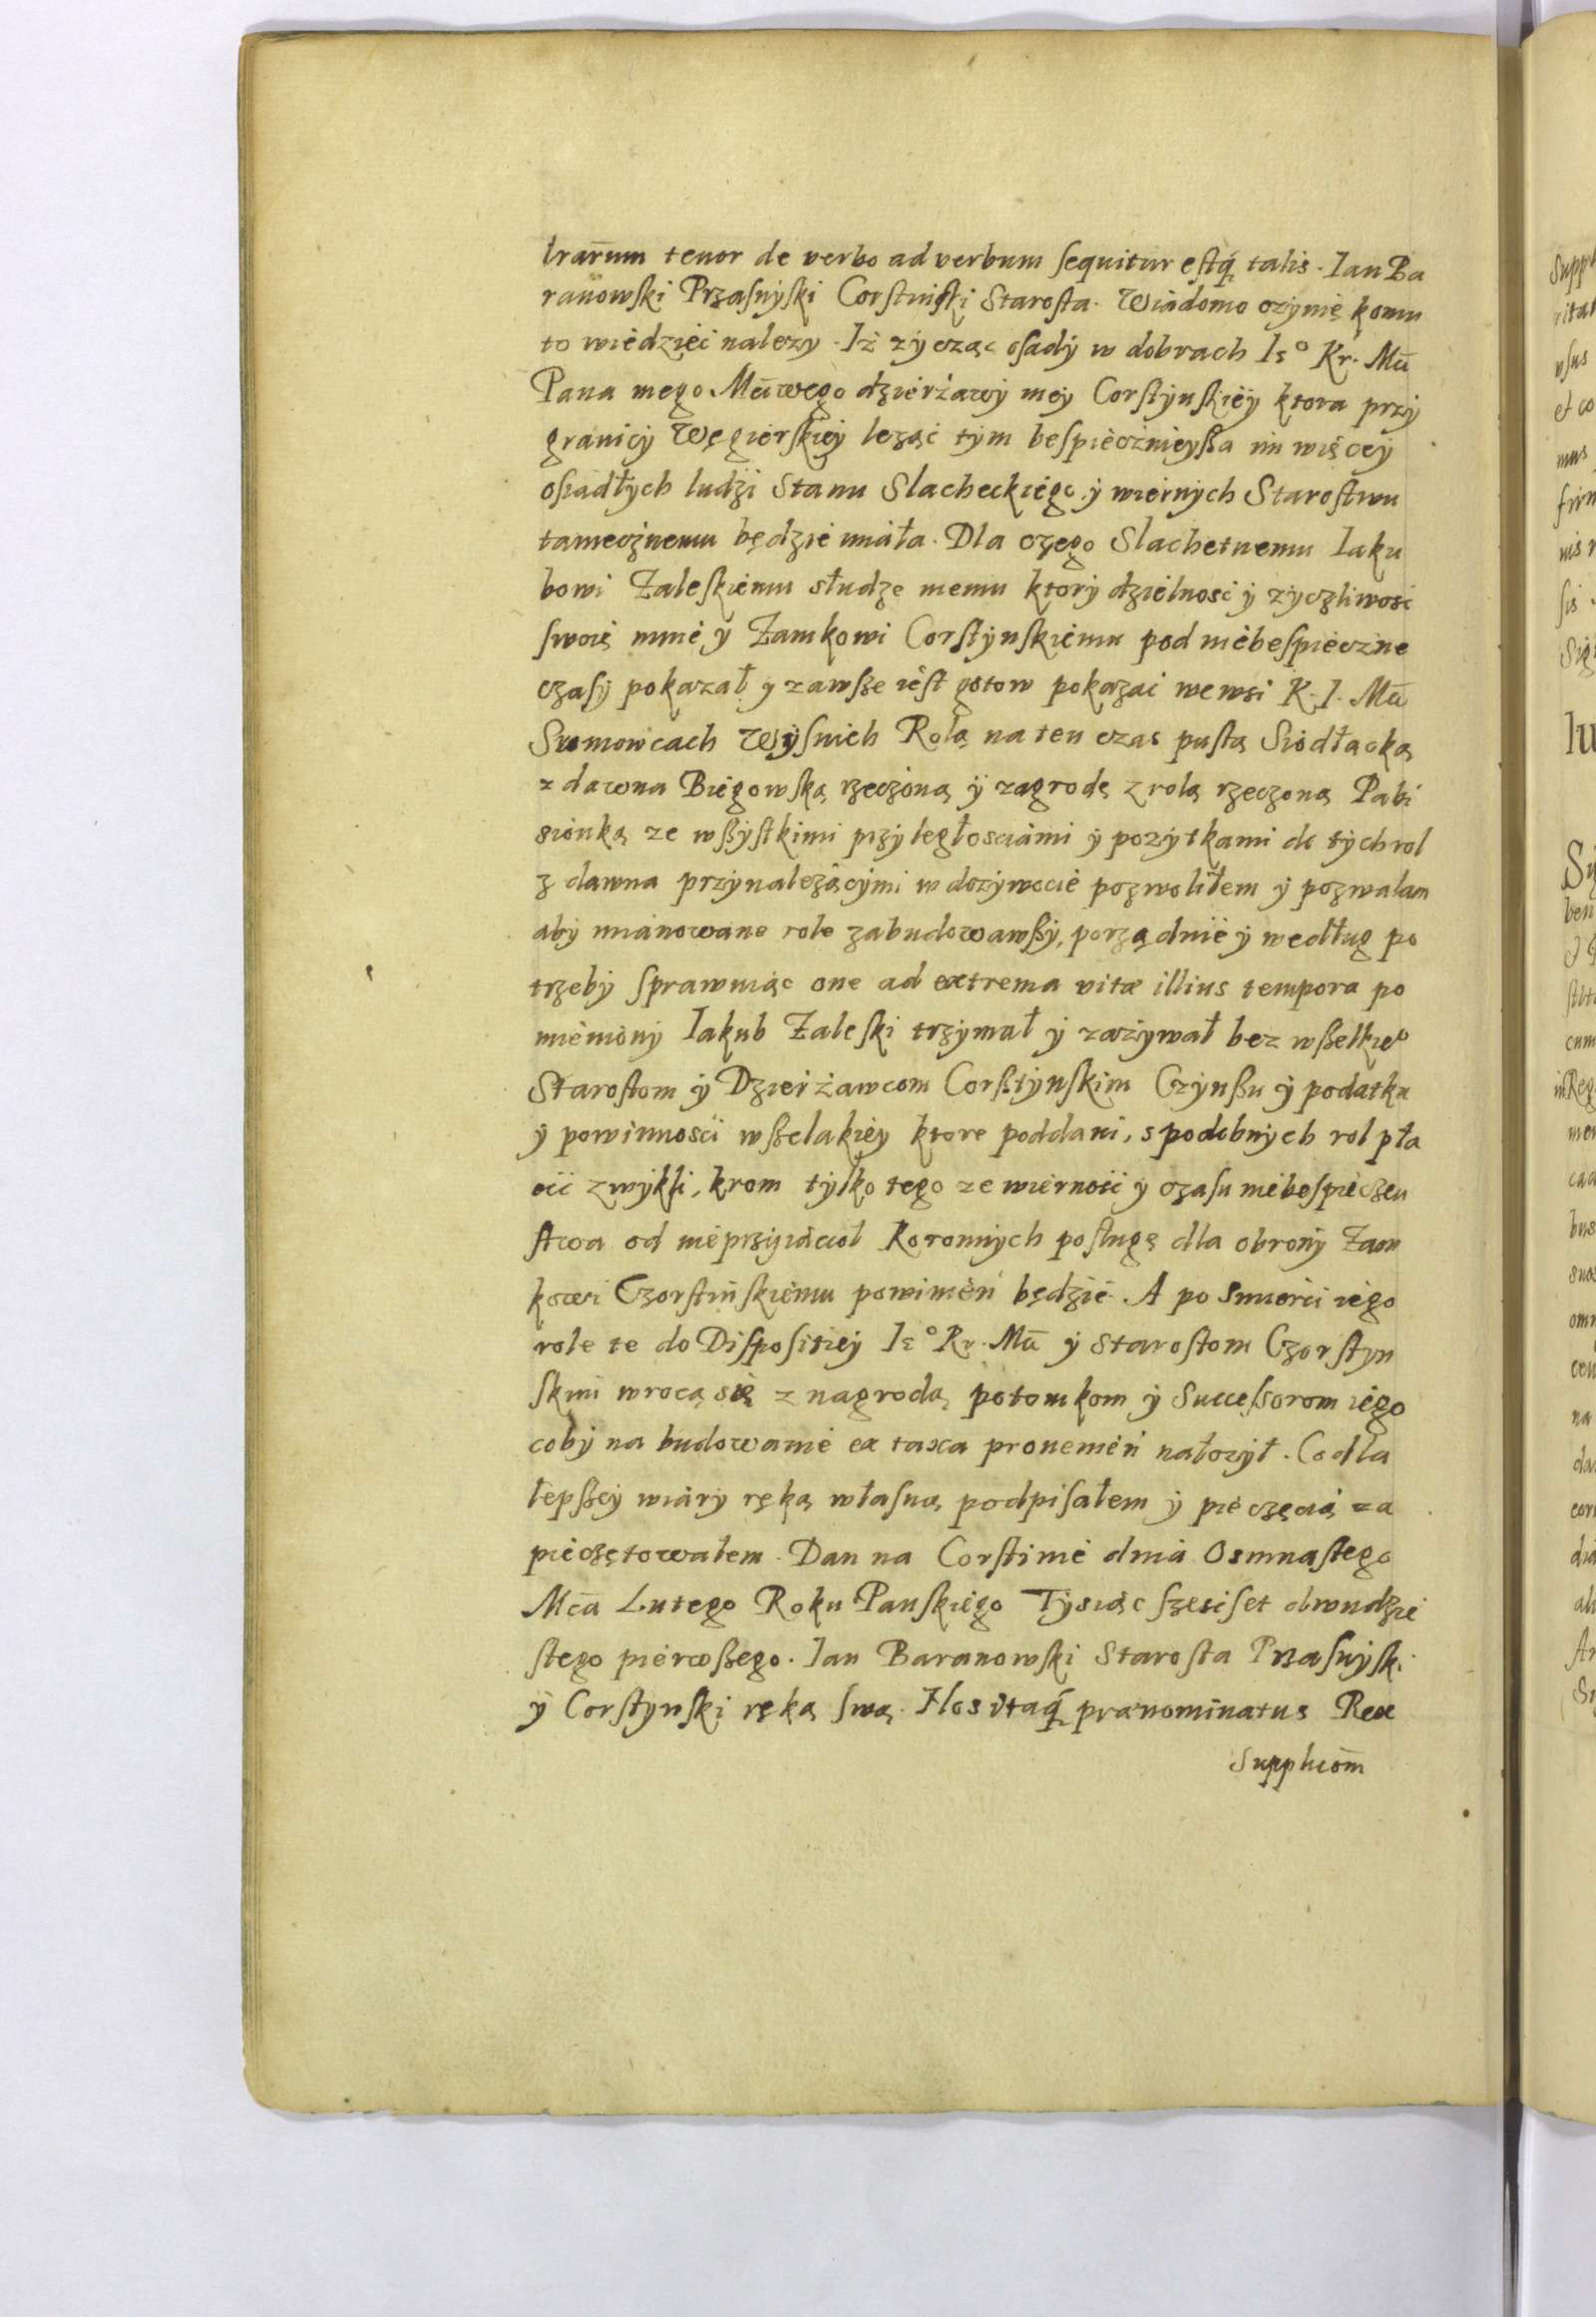 lrarum tenor de verbo ad verbum sequitur estq́ talis. Ian Ba
ranowski Przasnÿski Corstinski Starosta. Wiadomo czynię komu
to wiedzieć nalezy. Iż zÿcząc osadÿ w dobrach Iº Kr. Mci
Pana mego Mciwego dzierżawÿ meÿ Corstÿnskiéÿ ktora przÿ
granicÿ Węgierskieÿ leżąc tÿm bespiecznieÿßa im więceÿ
osiadłÿch ludzi Stanu Slacheckiego ÿ wiernÿch Starostwu
tamecznemu będzie miała. Dla czego Slachetnemu Iaku
bowi Zaleskiemu słudze memu ktorÿ dzielność ÿ zÿczliwość
swoię mnie ÿ Zamkowi Corstÿnskiemu pod niebespieczne
czasÿ pokazał ÿ zawsze iest gotow pokazać we wsi K. I. Mci
Sromowcach Wÿsnich Rolą na ten czas pustą Siodłacką
z dawna Biegowską rzeczoną ÿ zagrodę z rolą rzeczoną Pabi
sionką ze wßÿstkimi przÿległosciami ÿ pozÿtkami do tÿch rol
z dawna przÿnalezącÿmi w dozÿwocie pozwoliłem ÿ pozwalam
abÿ mianowane role zabudowawßÿ, porządnie ÿ według po
trzebÿ sprawuiąc one ad extrema vitæ illius tempora po
mieniony Iakub Zaleski trzÿmał ÿ zażÿwał bez wßelkieº
Starostom ÿ Dzierżawcom Corßtÿnskim Czÿnßu ÿ podatku
ÿ powinności wßelakieÿ ktore poddani, s podobnÿch rol pła
cić zwÿkli, krom tÿlko tego ze wierność ÿ czasu niebespieczeń
stwa od nieprzÿiacioł Koronnÿch posługę dla obronÿ Zam
kowi Czorstinskiemu powinień będzie. A po Smierci iego
role te do Dispositieÿ Iº Kr. Mci ÿ Starostom Czorstÿn
skim wrocą się z nagrodą potomkom ÿ Successorom iego
cobÿ na budowanie ex taxa prouenień nałożÿł. Co dla
lepßeÿ wiarÿ ręką własną podpisałem ÿ pieczęcią za
pieczętowałem. Dan na Corstinie dnia Osmnastego
Mca Lutego Roku Panskiego Tÿsiąc szescset dwudzie
stego pierwßego. Ian Baranowski Starosta Przasnÿski
ÿ Corstÿnski ręką swą. Nos itaq́ prænominatus Rex
Supplicom̄